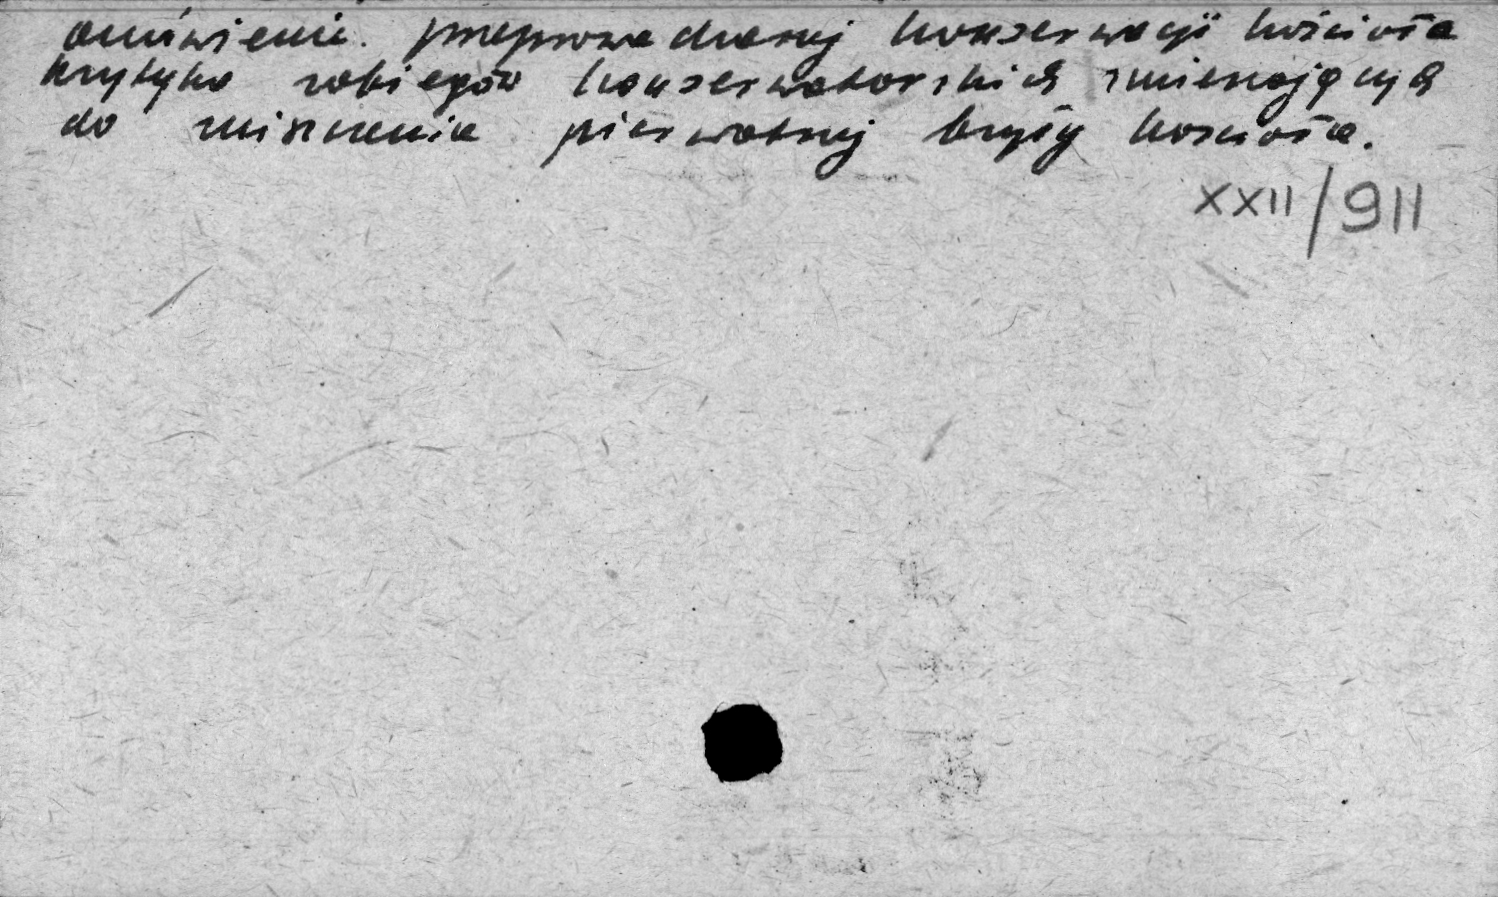 omówienie. przeprowadzonej konserwacji kościoła
krytyka zabiegów konserwatorskich zmierzających
do zniszczenia pierwotnej bryły kościoła.
XXII/911